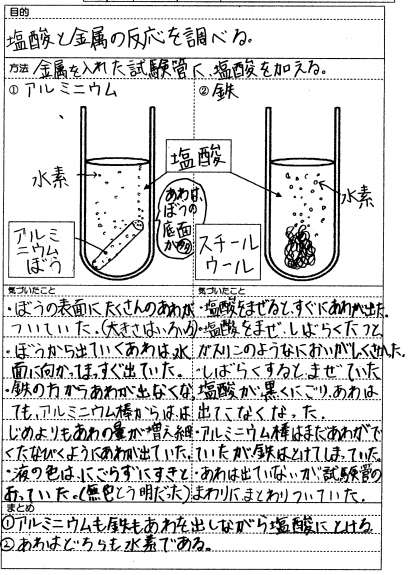 目的
塩酸と金属の反応を調べる。
方法 金属を入れた試験管に、塩酸を加える。
① アルミニウム
② 鉄
塩酸
水素
水素
あわは、
ぼうの
底面
が多い
アルミ
ニウム
ぼう
スチール
ウール
気づいたこと
・ぼうの表面にたくさんのあわが
ついていた。(大きさはいろいろ)
・ぼうから出ていくあわは、水
面に向かってまっすぐ出ていた。
・鉄の方からあわが出なくなっ
ても、アルミニウム棒からは、は
じめよりもあわの量が増え、細
くたなびくようにあわが出ていた。
・液の色は、にごらずにすきと
おっていた。(無色とう明だった)
気づいたこと
・塩酸をまぜると、すぐにあわが出た。
・塩酸をまぜ、しばらくたつと
がスリこのようなにおいがしてきた。
・しばらくすると、まぜていた
塩酸が黒くにごり、あわは
出てこなくなった。
・アルミニウム棒はまだあわがで
ていたが鉄はとけてしまっていた。
・あわは出ていないが試験管の
まわりにまとわりついていた。
まとめ
①アルミニウムも鉄もあわを出しながら塩酸にとける
②あわはどちらも水素である。